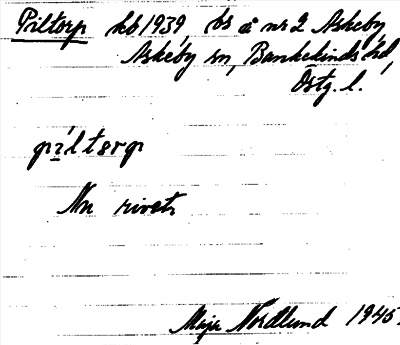 Piltorp kb 1939, bs å nr 2 Askeby
Askeby sn, Bankekinds hd,
Östg. l.
píltorp
Nu rivet,
Maja Nordlund 1945.